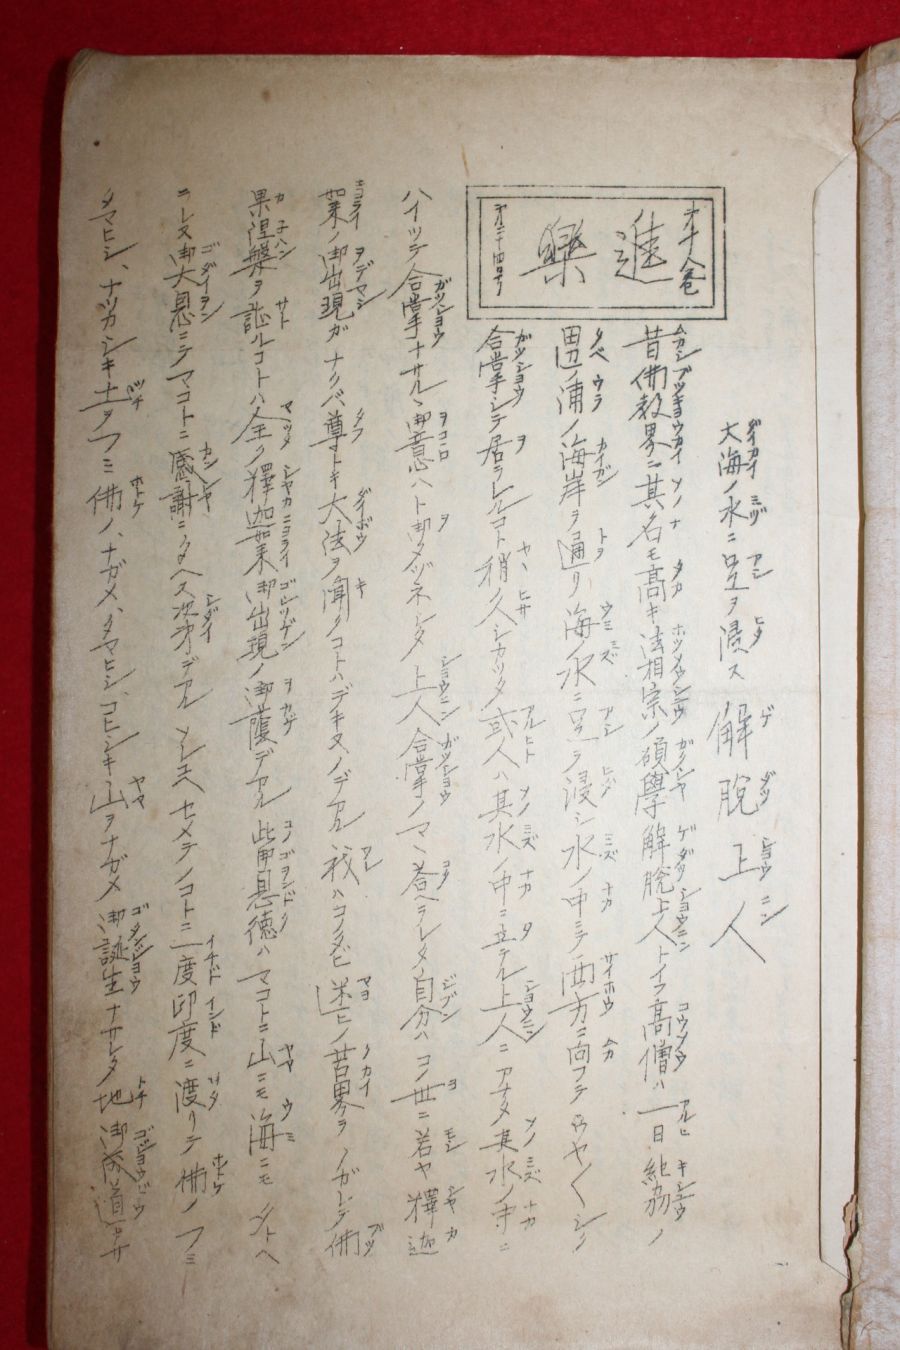 樂
大海ノ水ニ足ヲ浸ス 解脱上人
昔佛教界ニ其名モ高キ法相宗ノ碩學解脱上人トイフ高僧ハ一日紀州ノ
田辺ノ浦ノ海岸ヲ通リ海ノ水ニ足ヲ浸シ水ノ中ニテ西方ニ向フテウヤ〱シク
合掌シテ居ラレルコト稍々久シカツタ或人ハ其水ノ中ニ立テル上人ニアナタ其水ノ中ニ
ハイツテ合掌ナサルヽ御意ハト御タヅネシタ上人合掌ノマヽ答ヘラレタ自分ハコノ世ニ若ヤ釋迦
如來ノ御出現ガナクバ尊トキ大法ヲ聞クコトハデキヌノデアル我ハコノタビ迷ヒノ苦界ヲノガレテ佛
果涅槃ヲ証ルコトハ全ク釋迦如來御出現ノ御蔭デアル此御恩徳ハマコトニ山ニモ海ニモタトヘ
ラレヌ御大恩ニテマコトニ感謝ニタヘヌ次第デアル ソレユヘセメテノコトニ一度印度ニ渡リテ佛ノフミ
タマヒシ、ナツカシキ土ヲフミ佛ノ、ナガメ、タマヒシ、コヒシキ山ヲナガメ御誕生ナサレタ地御成道ナサ